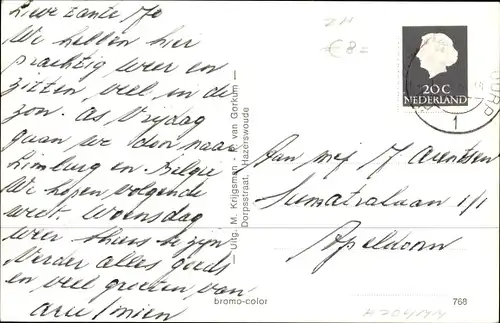 Lieve tante Jo
We hebben hier
prachtig weer en
zitten veel in de
zon. As Vrijdag
gaan we den naar
Limburg en Belgie
We hopen volgende
week Woensdag
weer thuis te zijn
Verder alles goeds
en veel groeten van
Arie/Mien
Uitg. M. Krijgsman - P. van Gorkum
Dorpsstraat, Hazerswoude
ZH
€ 8=
20 C
NEDERLAND
1
Aan mej J Arentsen
Sumatralaan 1/1
Apeldoorn
bromo-color
768